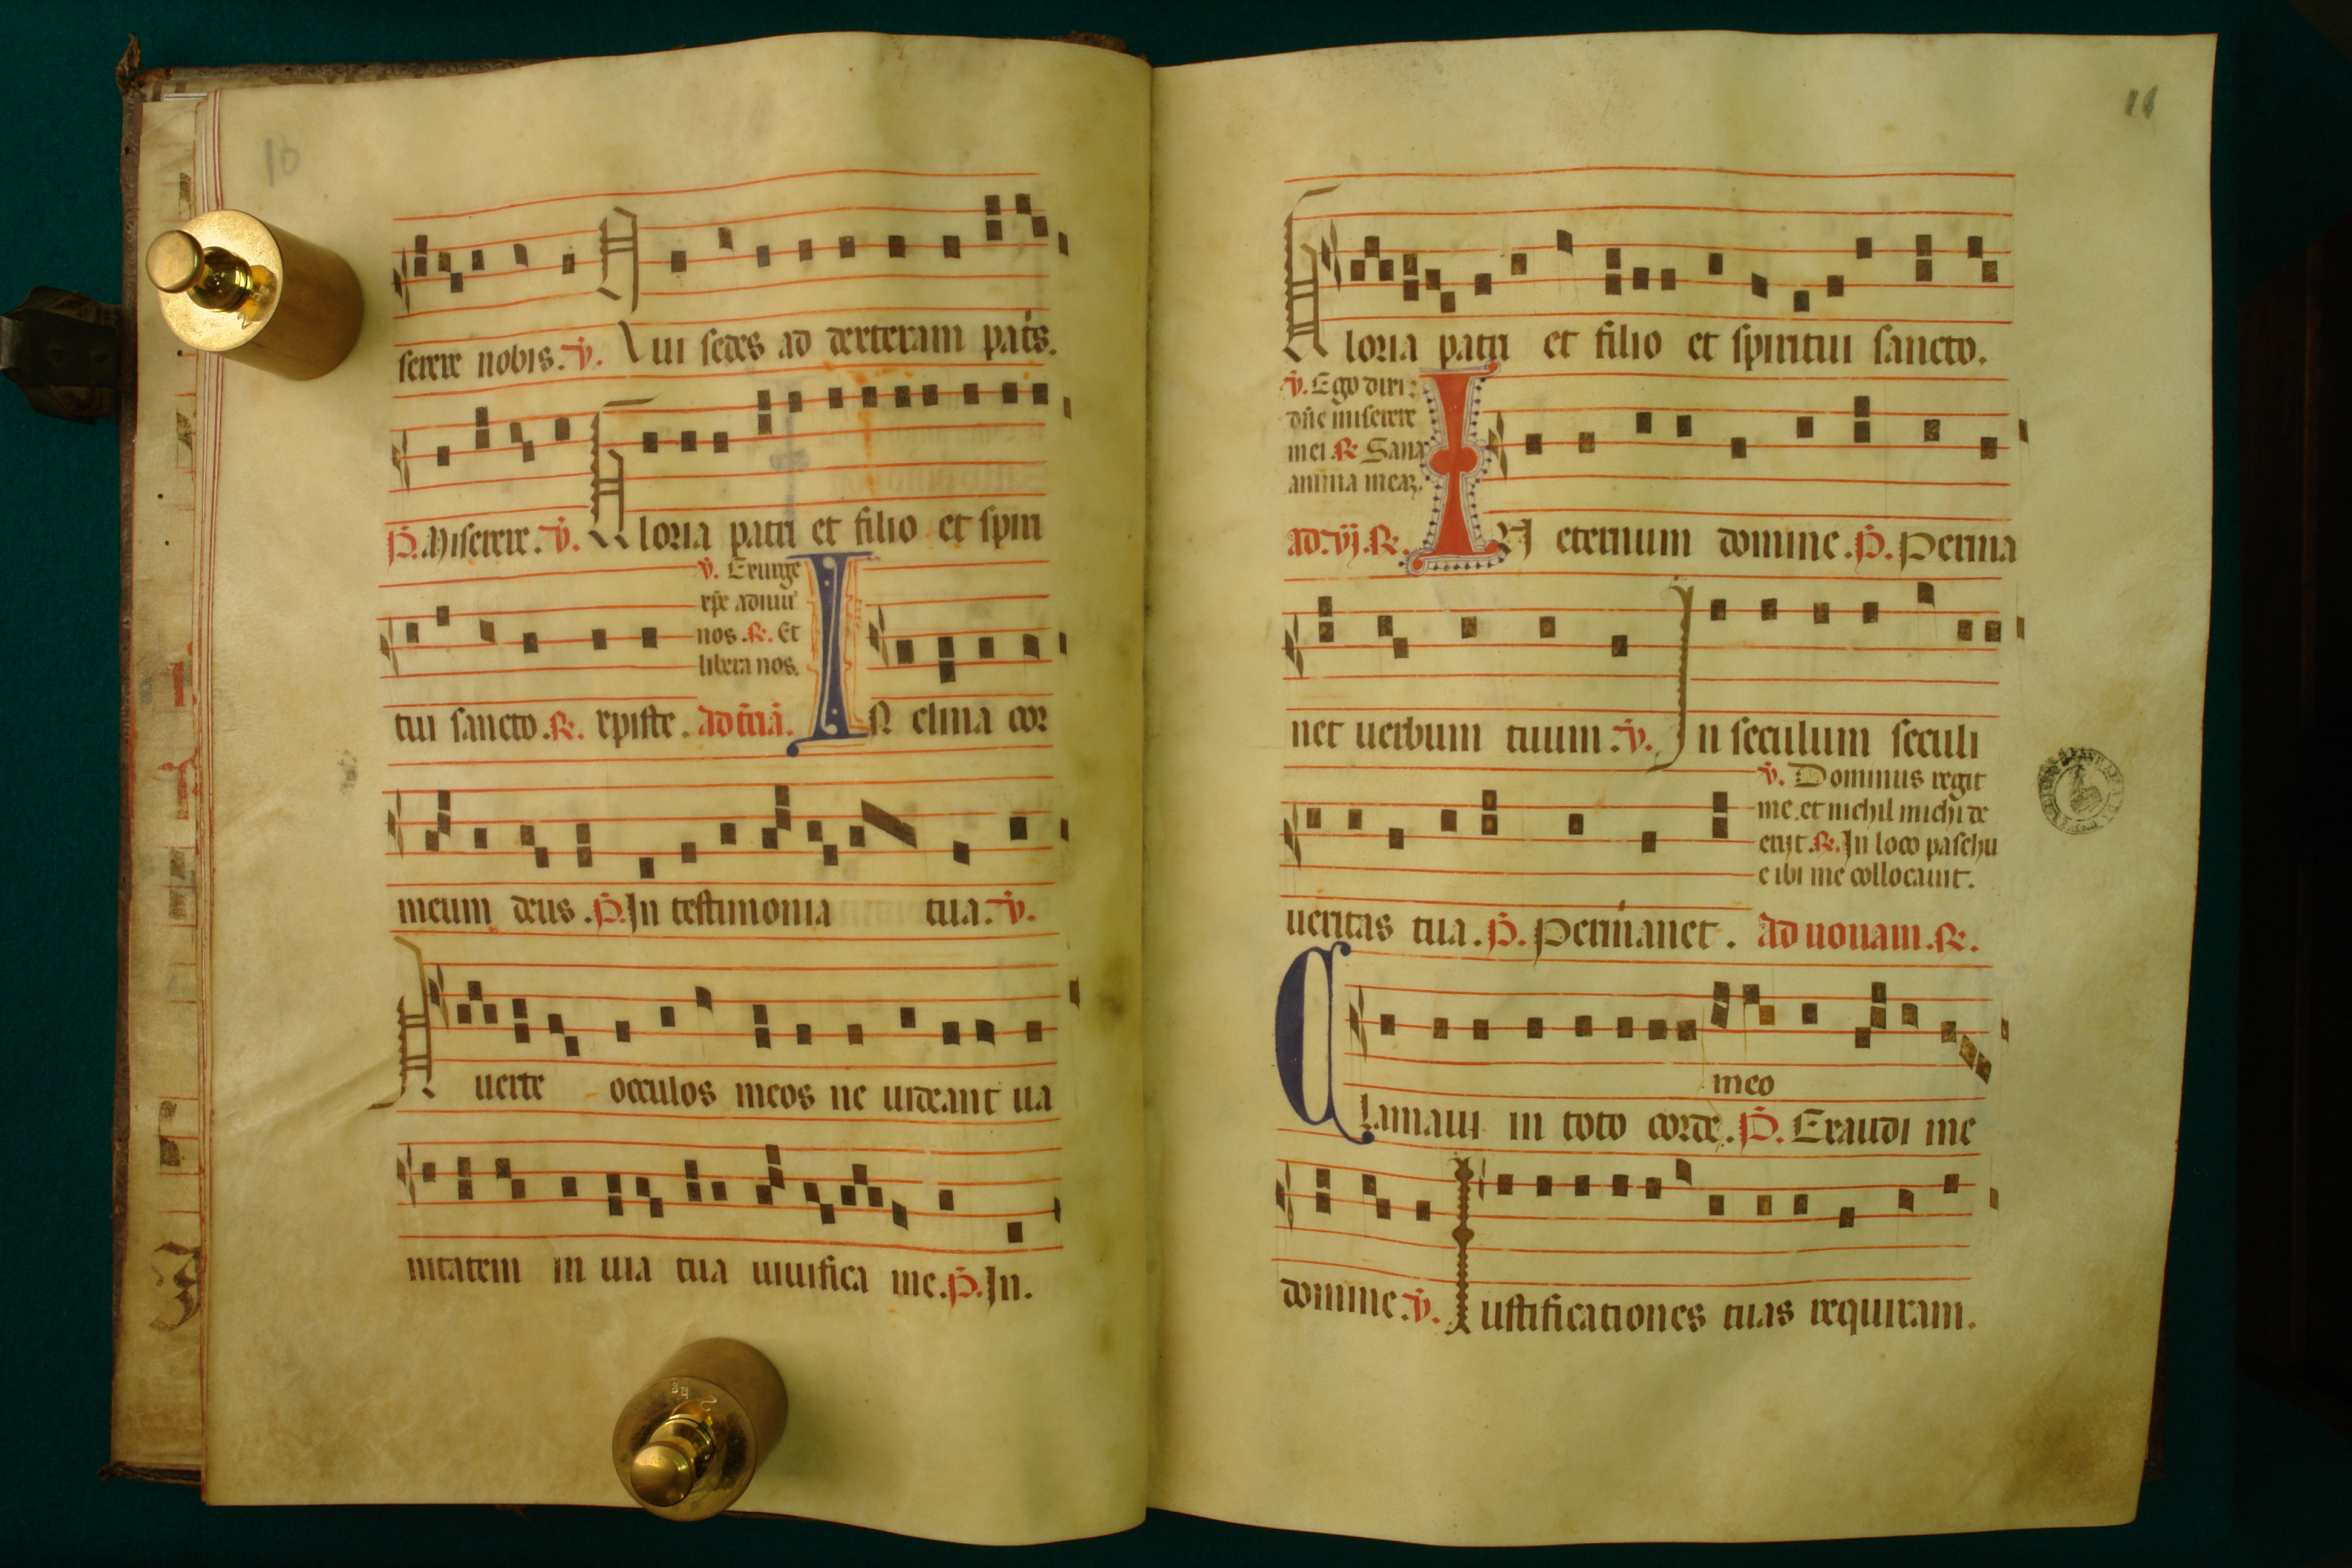 10
serere nobis. ꝟ. Qui sedes ad dexteram pat͛s.
P. Miserere. ꝟ. Gloria patri et filio et spiri
ꝟ. Exurge
xp̄e adiuu͛
nos. ℟. Et
libera nos.
tui sancto. ℟. xpiste. ad t͛ciā. IN clina cor
meum deus. P. In testimonia tua. ꝟ.
A uerte occulos meos ne uideant ua
nitatem in uia tua uiuifica me. P. In.
11
Gloria patri et filio et spiritui sancto.
ꝟ. Ego dixi:
dn̄e miserere
mei ℟ Sana
anima meaꝫ.
ad. vj. ℟. IN eternum domine. P. Perma
net uerbum tuum. ꝟ. In seculum seculi
ꝟ. Dominus regit
me. et nichil michi de
erit. ℟. In loco paschu
e ibi me collocauit.
ueritas tua. P. Permanet. ad nonam. ℟.
meo
Clamaui in toto corde. P. Exaudi me
domine. ꝟ. Iustificationes tuas requiram.